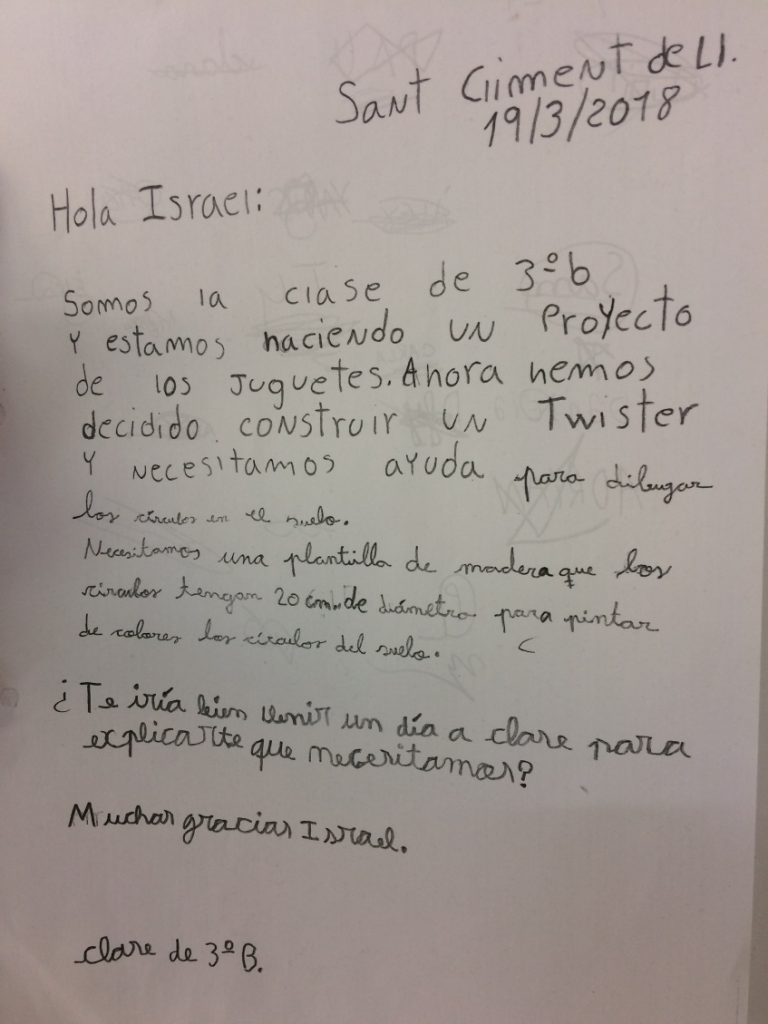 Sant Climent de Ll.
19/3/2018
Hola Israel:
Somos la clase de 3º b
Y estamos haciendo un Proyecto
de los juguetes. Ahora hemos
decidido construir un Twister
Y necesitamos ayuda para dibugar
los círculos en el suelo.
Necesitamos una plantilla de madera que los
círculos tengan 20 cm. de diámetro para pintar
de colores los círculos del suelo.
¿Te iría bien venir un día a clase para
explicarte que necesitamos?
Muchas gracias Israel.
clase de 3º B.